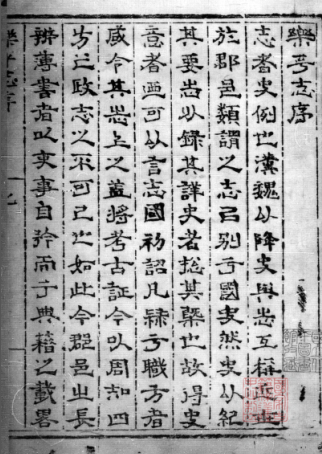 樂平志序
志者史例也漢魏以降史與志互稱近世
於郡邑類謂之志已別于國史然史以紀
其要志以錄其詳史者總其槩也故得史
意者西可以言志國初詔凡隸于職方者
咸令其志上之蓋將考古証今以周知四
方之政志之不可已也如此今郡邑之長
辨薄書者以吏事自矜而于典籍之載畧
樂平志序
一